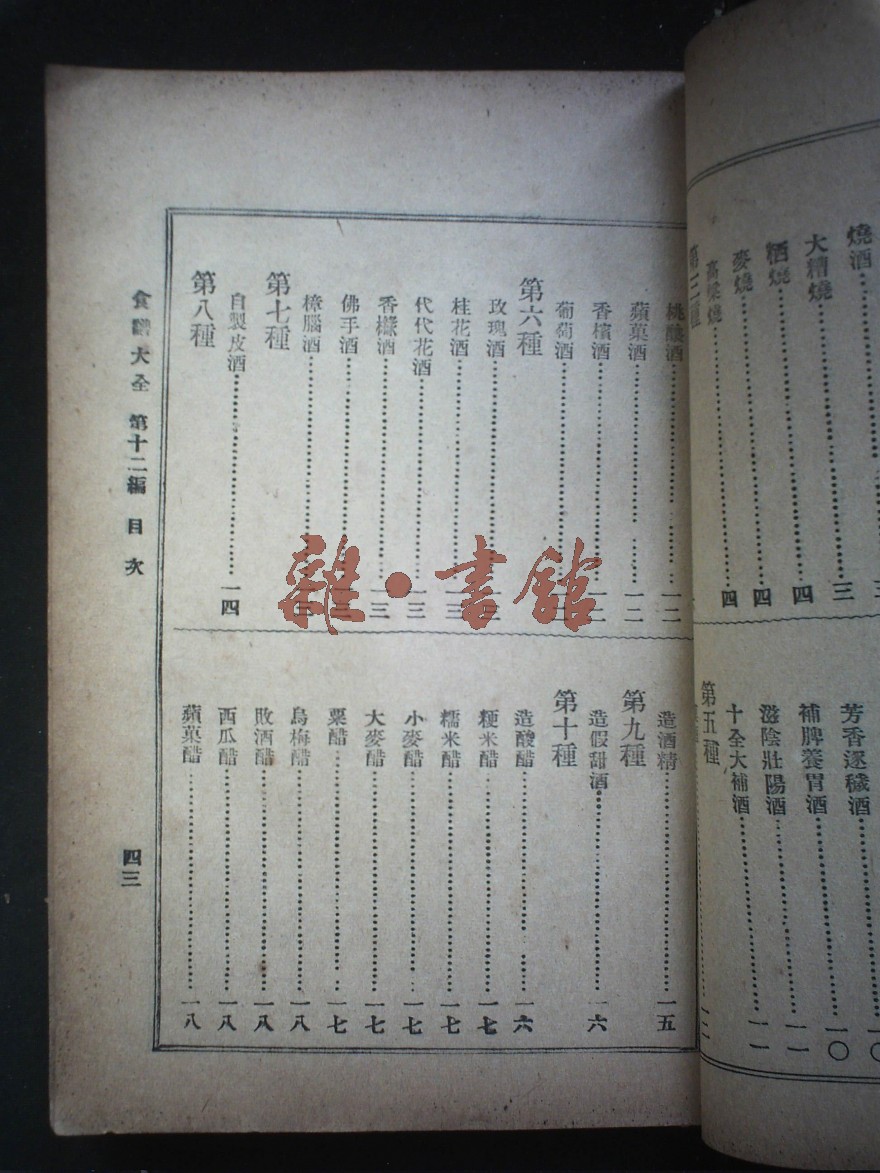 燒酒 三
大糟燒 三
粞燒 四
麥燒 四
高粱燒 四
第三種
芳香逐穢酒 一〇
補脾養胃酒 一〇
滋陰壯陽酒 一一
十全大補酒 一一
第五種
桃酸酒 一二
蘋菓酒 一二
香檳酒 一二
葡萄酒
第六種
玫瑰酒
桂花酒 一三
代代花酒 一三
香櫞酒 一三
佛手酒
樟腦酒
第七種
自製皮酒 一四
第八種
造酒精 一五
第九種
造假甜酒 一六
第十種
造酸醋 一六
粳米醋 一七
糯米醋 一七
小麥醋 一七
大麥醋 一七
粟醋 一七
烏梅醋 一八
敗酒醋 一八
西瓜醋 一八
蘋菓醋 一八
食譜大全 第十二編 目次 四三
雜·書館